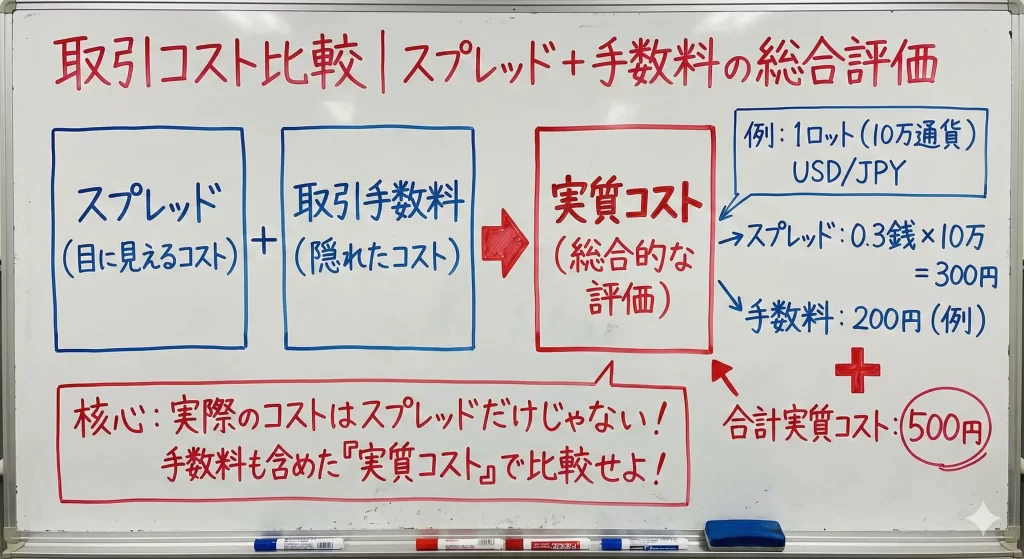 取引コスト比較|スプレッド+手数料の総合評価
スプレッド
(目に見えるコスト)
+
取引手数料
(隠れたコスト)
実質コスト
(総合的な
評価)
例:1ロット(10万通貨)
USD/JPY
→スプレッド:0.3銭×10万
=300円
手数料:200円(例)
+
合計実質コスト:500円
核心:実際のコストはスプレッドだけじゃない!
手数料も含めた『実質コスト』で比較せよ!